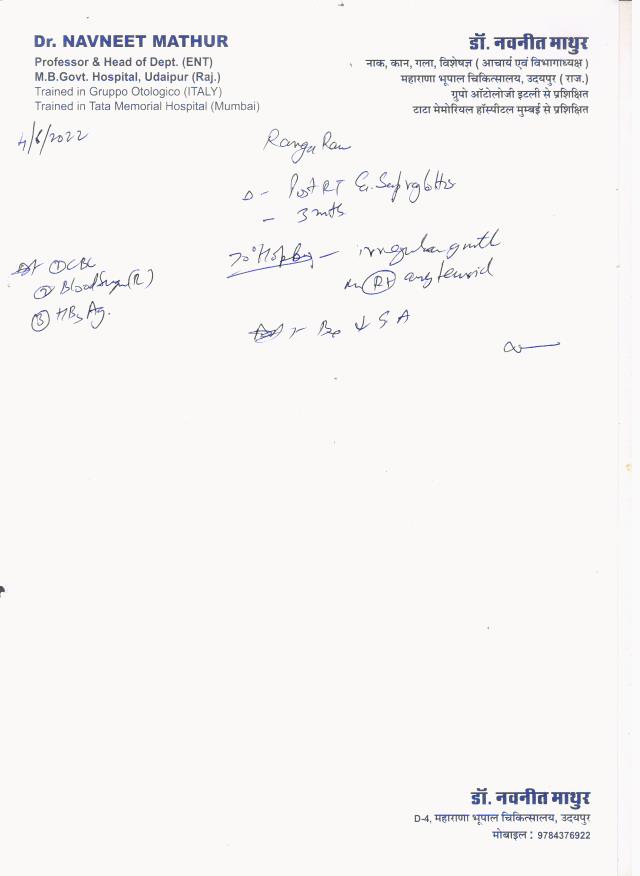 Dr. NAVNEET MATHUR
Professor & Head of Dept. (ENT)
M.B.Govt. Hospital, Udaipur (Raj.)
Trained in Gruppo Otologico (ITALY)
Trained in Tata Memorial Hospital (Mumbai)
डॉ. नवनीत माथुर
नाक, कान, गला, विशेषज्ञ ( आचार्य एवं विभागाध्यक्ष )
महाराणा भूपाल चिकित्सालय, उदयपुर ( राज.)
ग्रुपो ऑटोलोजी इटली से प्रशिक्षित
टाटा मेमोरियल हॉस्पीटल मुम्बई से प्रशिक्षित
4/6/2022
Post RT Ca. Supraglottis
- 3 mths
70° Hopkins - irregular growth
RT arytenoid
① CBC
② Blood Sugar (R)
③ HBsAg.
↓ G A
डॉ. नवनीत माथुर
D-4, महाराणा भूपाल चिकित्सालय, उदयपुर
मोबाइल : 9784376922